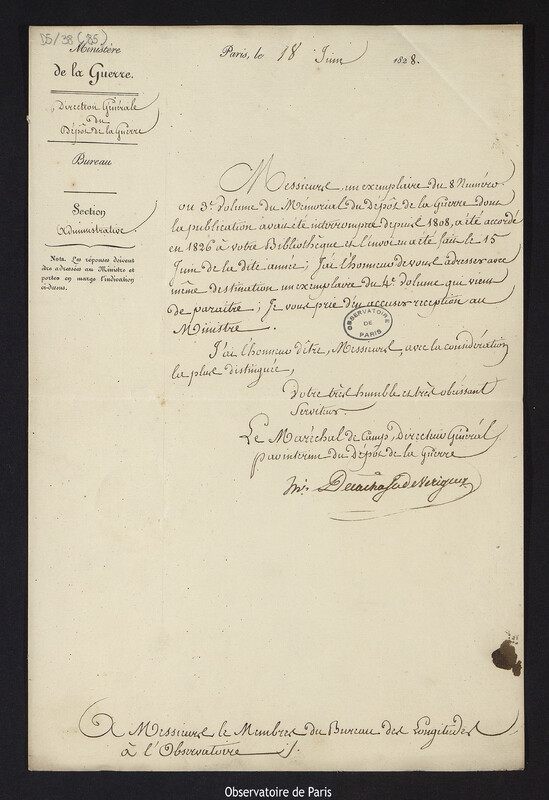 D5/38 (85)
Ministère
de la Guerre.
Direction Générale
du
Dépôt de la Guerre
Bureau
Section
Administrative.
Nota. Les réponses doivent
être adressées au Ministre et
porter en marge l'indication
ci-dessus.
Paris, le 18 Juin 1828.
Messieurs, un exemplaire du 8 Numéro
ou 3e. Volume du Mémorial du Dépôt de la Guerre dont
la publication avait été interrompue depuis 1808, a été accordé
en 1826 à votre Bibliothèque et l'envoi en a été fait le 15
Juin de la dite année; J'ai l'honneur de vous adresser avec
même destination un exemplaire du 4e. Volume qui vient
de paraître; Je vous prie d'en accuser réception au
Ministre.
J'ai l'honneur d'être, Messieurs, avec la considération
la plus distinguée,
Votre très humble et très obéissant
Serviteur.
Le Maréchal de Camp, Directeur Général
par interim du Dépôt de la Guerre
OBSERVATOIRE
DE
PARIS
A Messieurs le Membres du Bureau des Longitudes
à l'Observatoire ./.
Observatoire de Paris